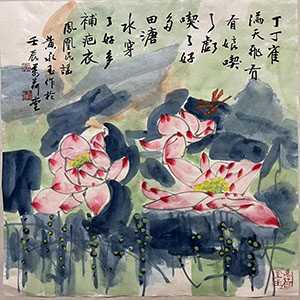 丁丁雀
满天飛
有娘喫
了虧
喫了好
多
田溏
水穿
了好多
補疤衣
鳳凰民謠
黄永玉作於
壬辰萬荷堂